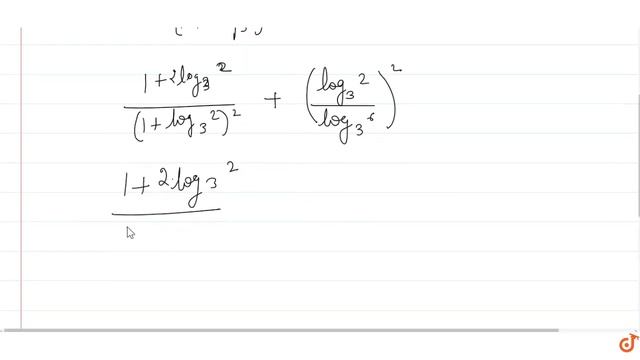 1 + 2 log₃ 2 / (1 + log₃ 2)² + (log₃ 2 / log₃ 6)²
1 + 2·log₃ 2
doubtnut